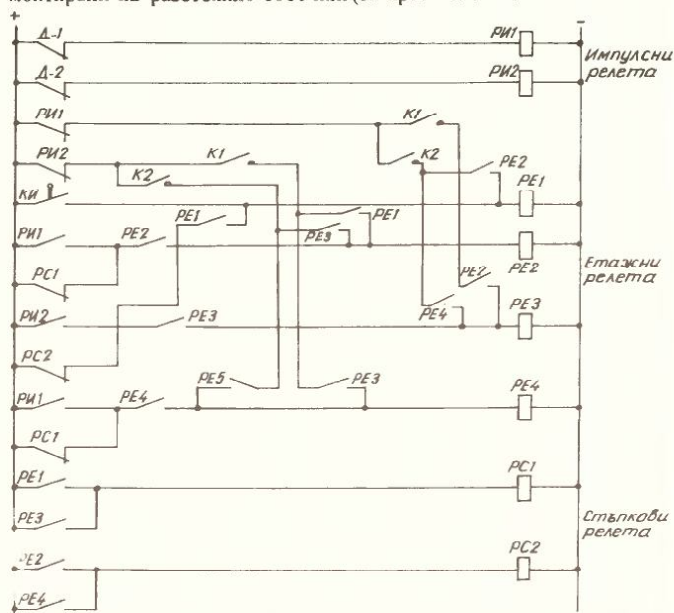 + −
Д-1 РИ1
Импулсни
релета
Д-2 РИ2
РИ1 К1
К2 РЕ2
РИ2 К1
К2
КИ РЕ1 РЕ1 РЕ1
РИ1 РЕ2 РЕ3 РЕ2
Етажни
релета
РС1 РЕ2
РЕ4 РЕ3
РИ2 РЕ3
РС2
РИ1 РЕ4 РЕ5 РЕ3 РЕ4
РС1
РЕ1 РС1
РЕ3
Стъпкови
релета
РЕ2 РС2
РЕ4